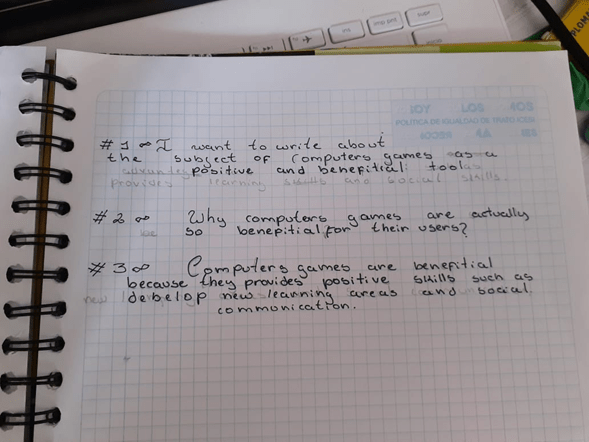 # 1 ∞ I want to write about
the subject of computers games as a
positive and benefitial tool
provides learning skills and social skills.
# 2 ∞ Why computers games are actually
so benepitial for their users?
# 3 ∞ Computers games are benefitial
because they provides positive skills such as
debelop new learning areas and social
communication.
POLITICA DE IGUALDAD DE